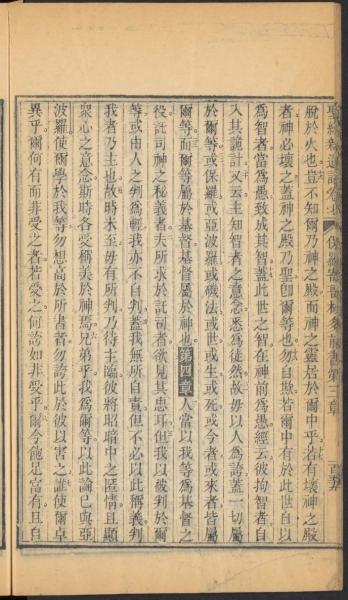 脫於火也豈不知爾乃神之殿而神之靈居於爾中乎若有壞神之殿
者神必壞之蓋神之殿乃聖卽爾等也勿自欺若爾中有於此世自以
為智者當為愚致成其智蓋此世之智在神前為愚經云彼拘智者自
入其詭計又云主知智者之意念悉為徒然故毋以人為誇蓋一切屬
於爾等或保羅或亞波羅或磯法或世或生或死或今者或來者皆屬
爾等而爾等屬於基督基督屬於神也第四章人當以我等為基督之
役託司神之秘義者夫所求於託司者欲見其忠耳但我以被判於爾
等或由人之判為輕我亦不自判蓋我無所自責但不必以此稱義判
我者乃主也故時未至毋有所判乃待主臨彼將昭暗中之匿情且顯
眾心之意念斯時各受稱美於神焉兄弟乎我為爾等以此論己與亞
波羅使爾學於我等勿想高於所書者勿誇此於彼以害之誰使爾卓
異乎爾何有而非受之者若受之何誇如非受乎爾今飽足富有且自